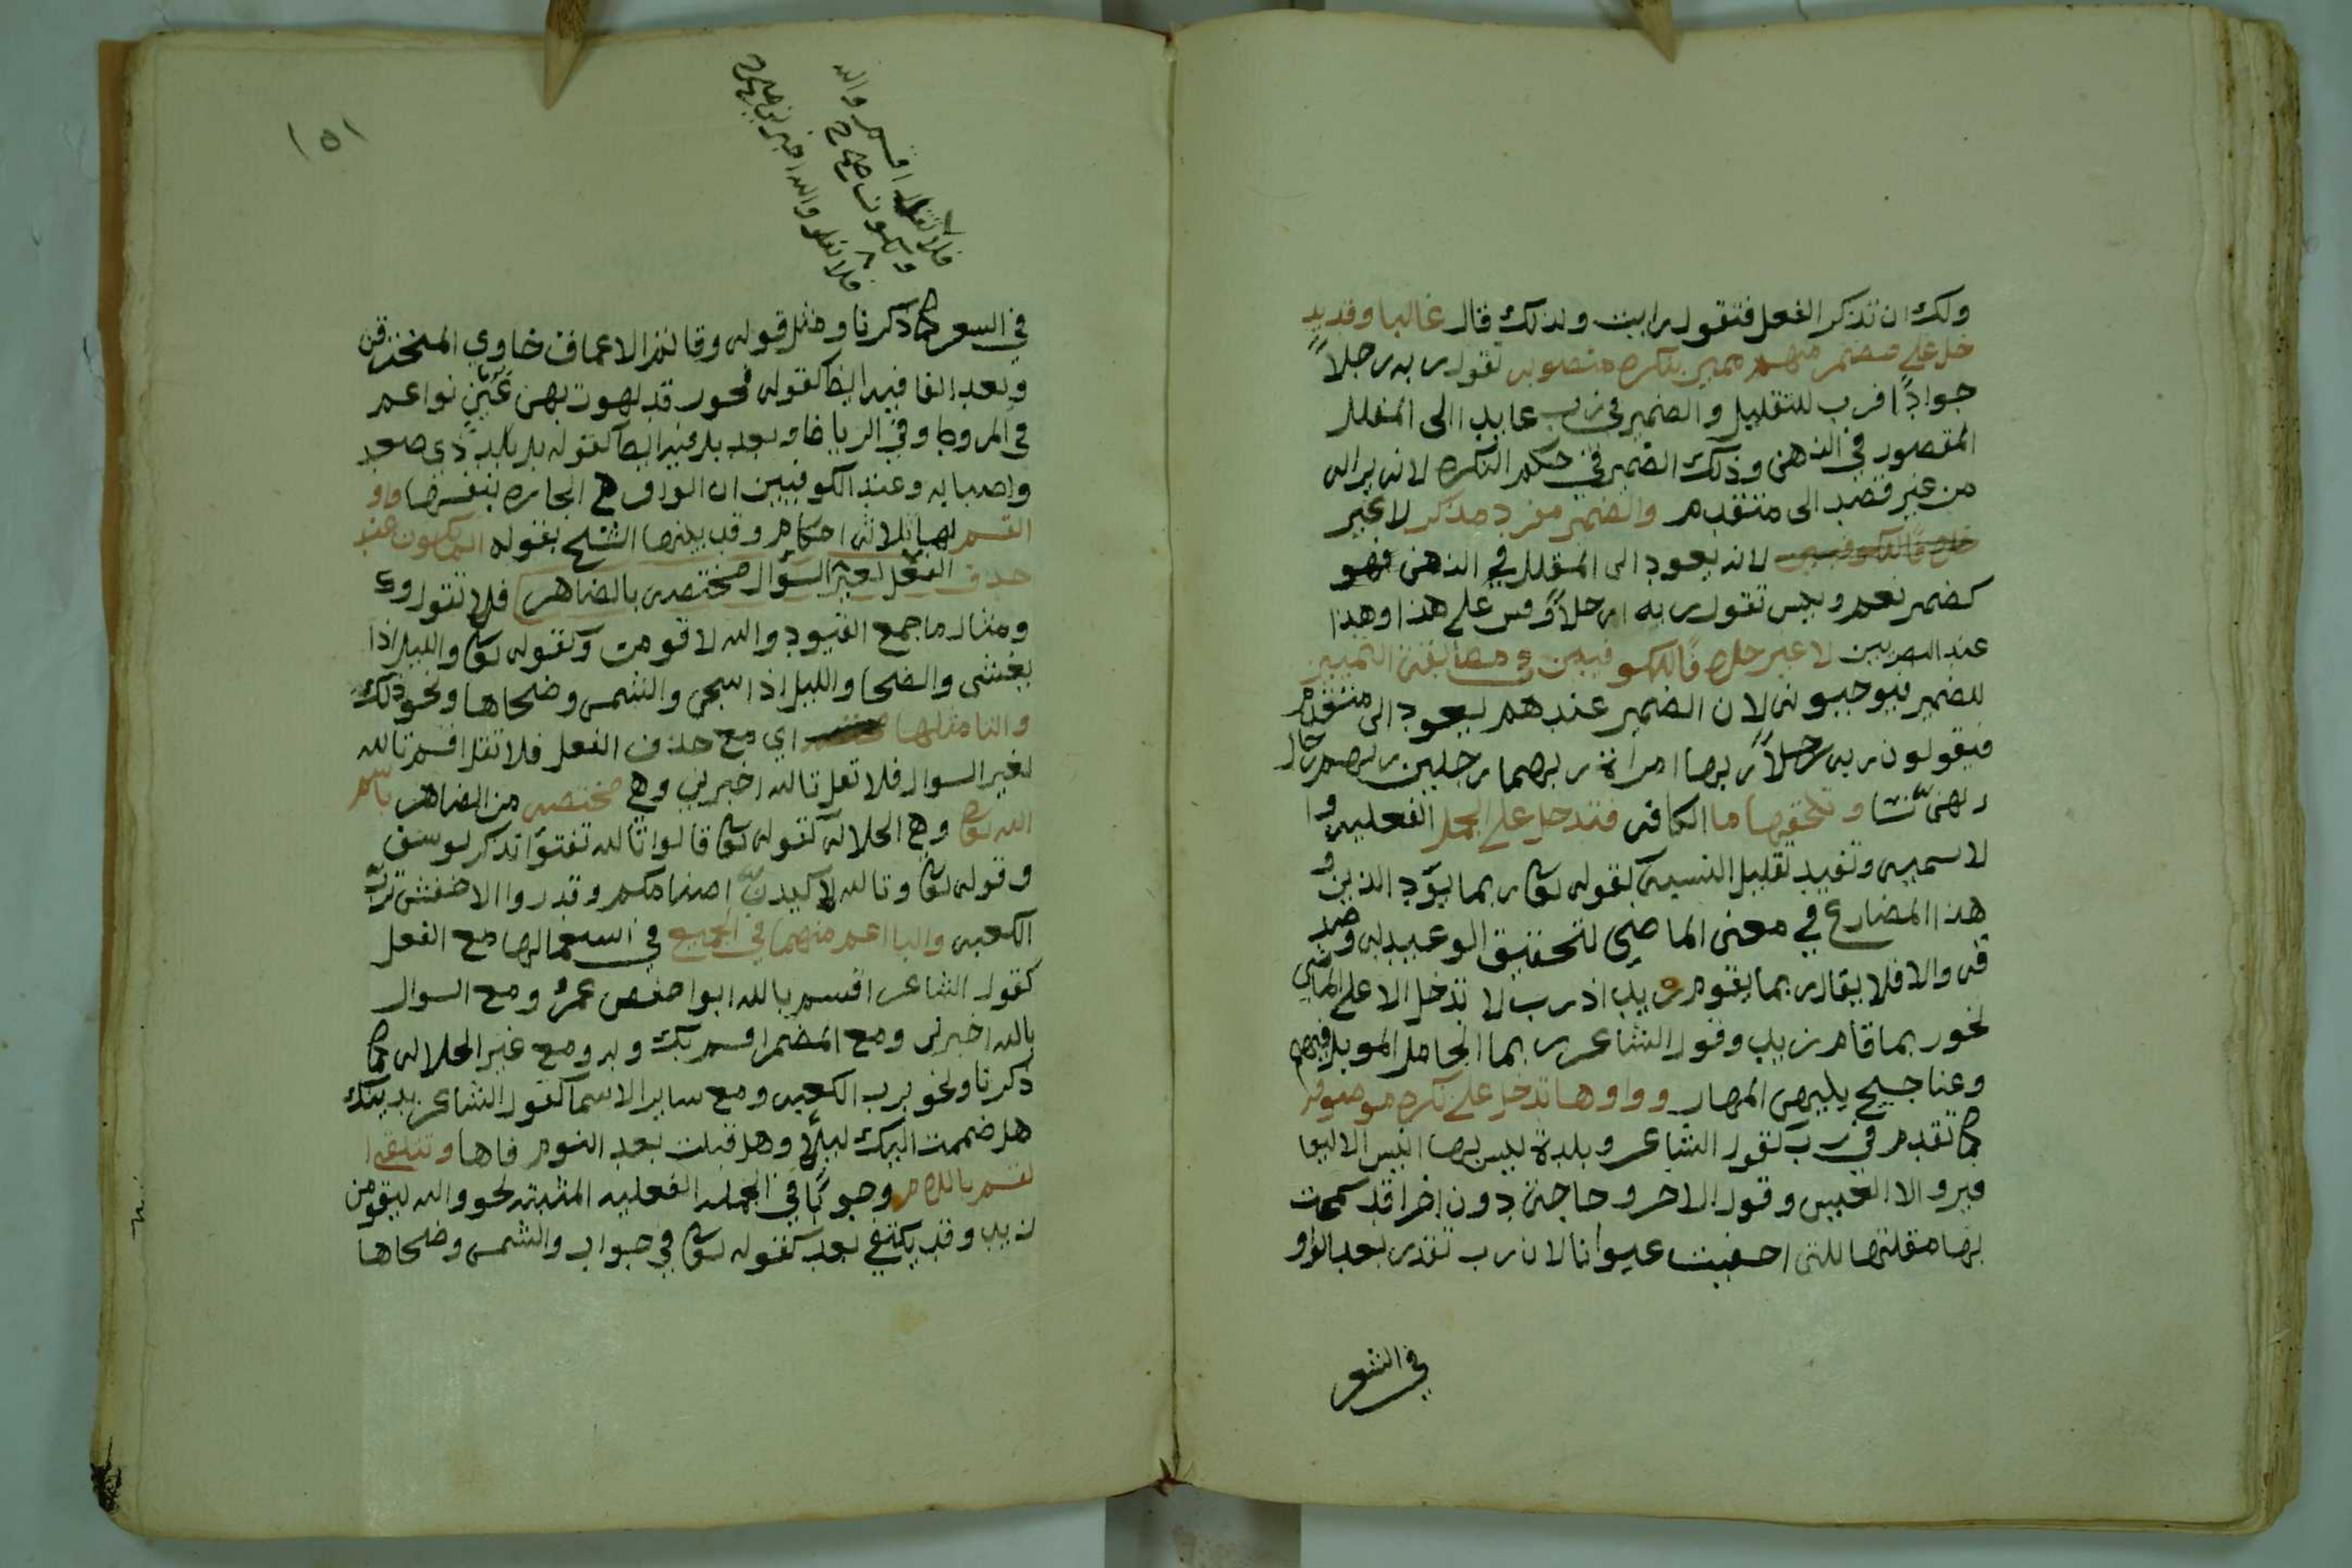 ولك ان تذكر الفعل فتقول رايت ولذلك قال غالبا وقد يد
خل على مضمر مبهم مميز بنكره منصوبه تقول ربه رجلاً
جواداً فرب للتقليل والضمير في رب عايد الى المقلل
المقصور في الذهن وذلك الضمير في حكم النكره لانه يراله
من غير قصد الى متقدم والضمير مفرد مذكر لا غير
خلافاً للكوفيين لانه يعود الى المقلل في الذهن فهو
كضمير نعم وبيس تقول ربه امرحلاً وقس على هذا وهذا
عند البصريين لا غير خلافاً للكوفيين في مطابقة التمييز
للضمير فيوجبونه لان الضمير عندهم يعود الى متقدم
فيقولون ربه رجلاً ربها امراة ربهما رجلين ربهم رجال
ربهن نسا وتلحقها ما الكافه فتدخل على الجمل الفعليه وا
لاسميه وتفيد تقليل النسبه كقوله تعا ربما يود الذين و
هذا المضارع في معنى الماضي لتحقيق الوعيد له وصد
قه والا فلا يقال ربما يقوم زيد اذ رب لا تدخل الا على الماضي
نحو ربما قام زيد وقول الشاعر ربما الجامل الموبل فيهم
وعناجيج بينهن المهار وواوها تدخل على نكره موصوفه
كما تقدم في رب كقول الشاعر وبلدة ليس بها انيس الا اليعا
فير والا العيس وقول الاخر وحاجة دون اخرا قد سمحت
بها مقلتها للتي احفيت عيوانا لان رب تقدر بعد الواو
في الشعر
١٥١
فلا تقل اقسم والله
ويكون صح
فلا تقل والله اخبرني صح
في السعر كما ذكرنا ومثل قوله وقاتم الاعماق خاوي المخترقن
وبعد الفا فيه ايضا كقوله فحور قد لهوت بهن عين نواعم
في المروط وفي الرياط وبعد بل فيه ايضا كقوله بل بلد ذي صعد
واصباب وعند الكوفيين ان الواو هي الجاره بنفسها واو
القسم لها ثلاثه احكام وقد بينها الشيخ بقوله انما تكون عند
حذف الفعل لغير السؤال مختصه بالضاهر فلا تقول وك
ومثال ما جمع القيود والله لا قومت وكقوله تعا والليل اذا
يغشى والضحا والليل اذا سجى والشمس وضحاها ونحو ذلك
والتا مثلها مختصه اي مع حذف الفعل فلا تقل اقسم تالله
لغير السوال فلا تقل تالله اخبرني وهي مختصه من الضاهر باسم
الله تعا وهي الجلاله كقوله تعا قالوا تالله تفتؤا تذكر يوسف
وقوله تعا وتالله لاكيدنّ اصنامكم وقد روا الاخفش تربّ
الكعبه والبا اعم منهما في الجميع في استعمالها مع الفعل
كقول الشاعر اقسم بالله ابوا حفص عمر ومع السوال
بالله اخبرني ومع المضمر اقسم بك وبه ومع غير الجلاله كما
ذكرنا ونحو برب الكعبه ومع ساير الاسما كقول الشاعر بدينك
هل ضممت اليك ليلاً وهل قبلت بعد النوم فاها وتتلقى ا
لقسم باللام وجوباً في الجمله الفعليه المثبته نحو والله ليقومن
زيد وقد يكتفي بعد كقوله تعا في جواب والشمس وضحاها